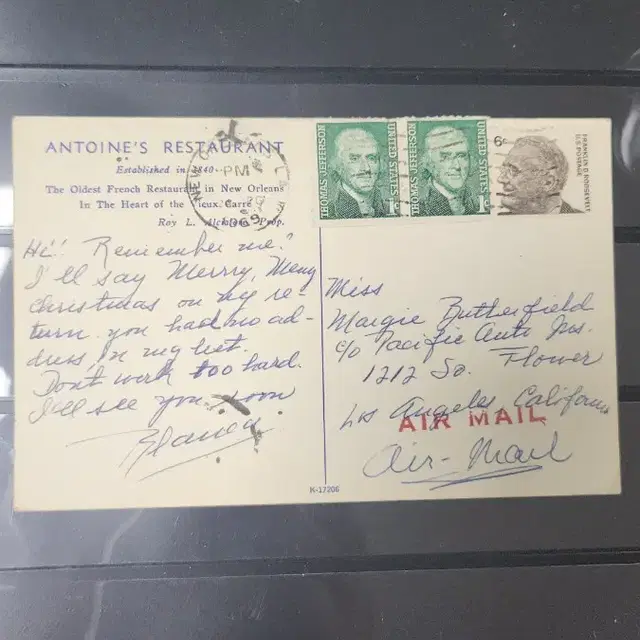 ANTOINE'S RESTAURANT
Established in 1840
The Oldest French Restaurant in New Orleans
In The Heart of the Vieux Carre
Roy L. Alciatore, Prop.
NEW ORLE
PM
1969
THOMAS JEFFERSON
UNITED STATES
1c
THOMAS JEFFERSON
UNITED STATES
1c
6c
FRANKLIN D. ROOSEVELT
U.S. POSTAGE
Hi!! Remember me?
I'll say Merry, Merry
Christmas on my re-
turn. you had no ad-
dress, in my list.
Don't work too hard.
I'll see you soon
Miss
Margie Butterfield
c/o Pacific Auto Ins.
1212 So. Flower
Los Angeles, California
AIR MAIL
Air-Mail
K-17206